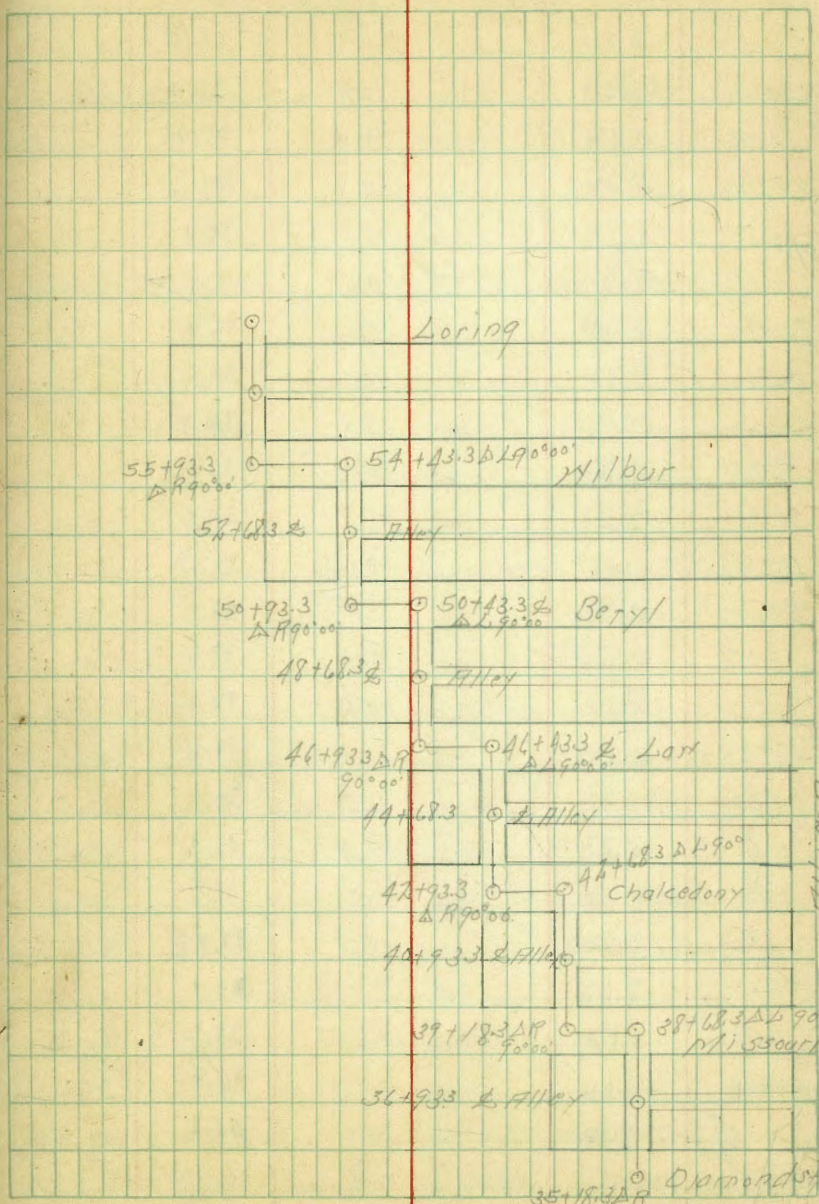 Loring
55+93.3
Δ R 90°00'
54+43.3 Δ L 90°00'
Wilbur
52+68.3 ℄ Alley
50+93.3
Δ R 90°00'
50+43.3 ℄
Δ L 90°00'
Beryl
48+68.3 ℄ Alley
46+93.3 Δ R
90°00'
46+43.3 ℄
Δ L 90°00'
Law
44+68.3 ℄ Alley
42+68.3 Δ L 90°
Chalcedony
42+93.3
Δ R 90°00'
40+93.3 ℄ Alley
39+18.3 Δ R
90°00'
38+68.3 Δ L 90
Missouri
36+93.3 ℄ Alley
Diamond St
35+18.3 Δ R